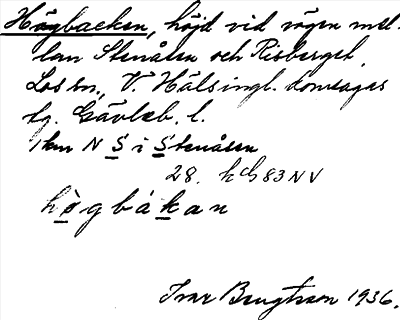 Högbacken, höjd vid vägen mel-
lan Stenåsen och Risberget,
Los sn., V. Hälsingl. domsagas
tg. Gävleb. l.
1 km N S i Stenåsen
28. 83 NV
högbákan
Ivar Bengtsson 1936.